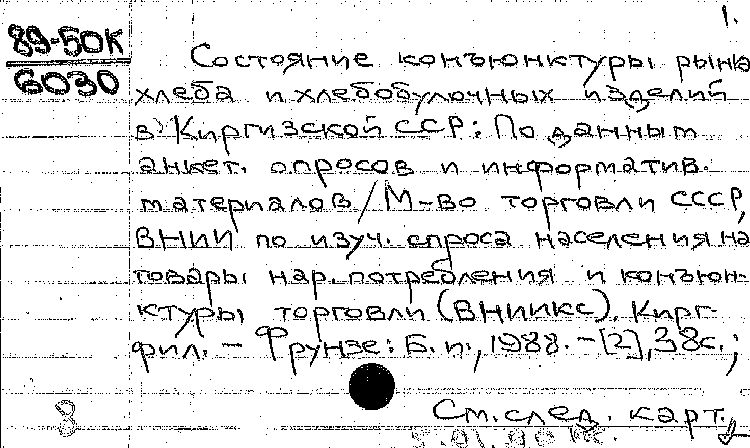 1.
89-50К
6030
Состояние конъюнктуры рынка
хлеба и хлебобулочных изделий
в Киргизской ССР: По данным
анкет. опросов и информатив.
материалов/М-во торговли СССР,
ВНИИ по изуч. спроса населения на
товары нар. потребления и конъюн-
ктуры торговли (ВНИИКС). Кирг.
фил. – Фрунзе: Б.и., 1988. – [2], 38с.;
8
См. след. карт.